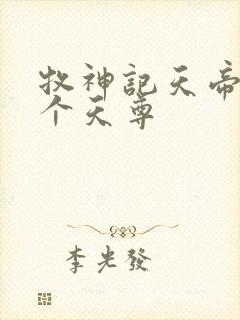 牧神記天帝
个天尊
李光發